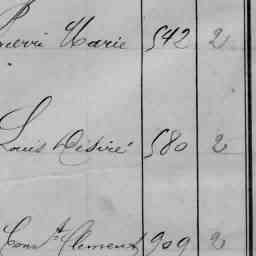 Pierre Marie 542 2
Louis Désiré 580 2
Const. Clément 909 2